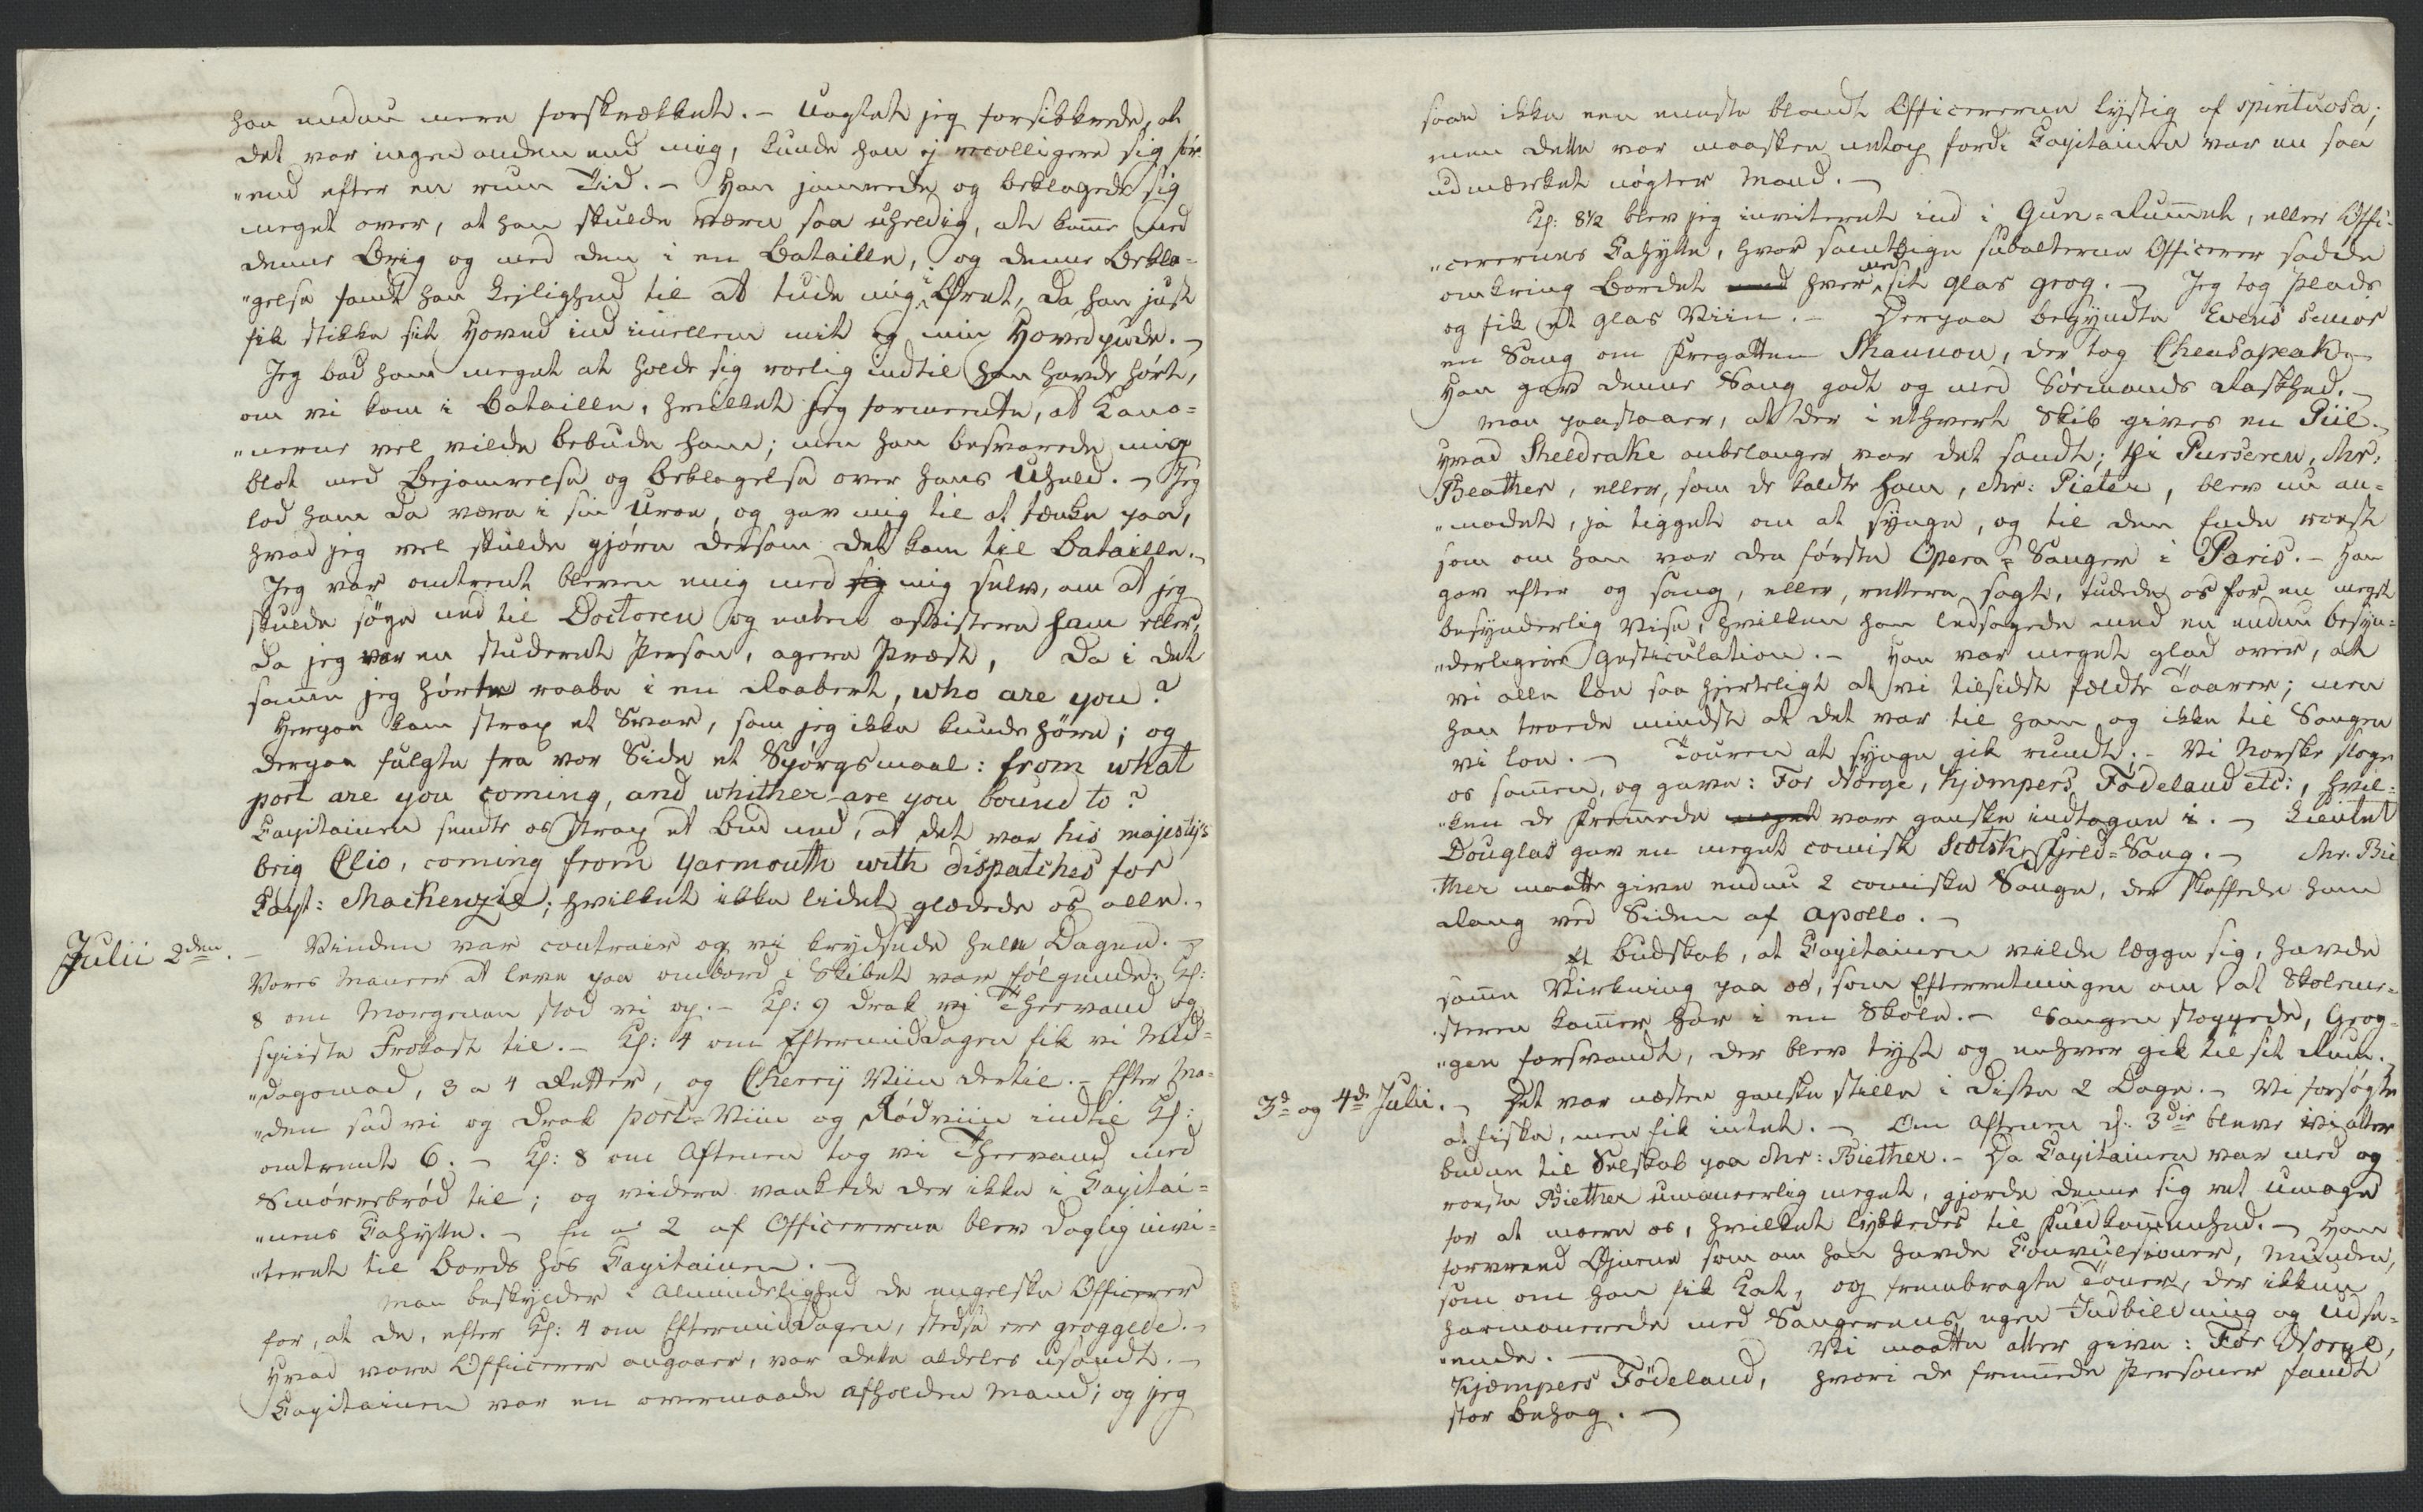 han endnu mere forskrækket. – Uagtet jeg forsikkrede, at
det var ingen anden end mig, kunde han ej recolligere sig før¬
„end efter en rum Tid. – Han jamrede og beklagede sig
meget over, at han skulde være saa uheldig, at kom̄e med
denne Brig og med den i en Bataille, og denne Bekla=
„gelse fandt han Lejlighed til at tude mig i Øret, da han just
fik stikke sit Hoved ind imellem mit og min Hovedpude. –
Jeg bad ham meget at holde sig rolig indtil han havde hørt,
om vi kom i Bataille, hvilket jeg formeente, at Kano=
„nerne vel vilde bebude ham; men han besvarede mig
blot med Bejamrelse og Beklagelse over hans Uheld. – Jeg
lod ham da være i sin Uroe, og gav mig til at tænke paa,
hvad jeg vel skulde gjøre dersom det kom til Bataille. –
Jeg var omtrent bleven enig med sig mig selv, om at jeg
skulde søge ned til Doctoren og enten assistere ham eller,
da jeg var en studeret Person, agere Præst, da i det
sam̄e jeg hørte raabe i en Raabert, who are you?
Herpaa kom strax et Svar, som jeg ikke kunde høre; og
derpaa fulgte fra vor Side et Spørgsmaal: from what
port are you coming, and whither are you bound to?
Capitainen sendte os strax et Bud ned, at det var his majesty's
brig Clio, coming from Yarmouth with dispatches for
Capt: Mackenzie; hvilket ikke lidet glædede os alle. –
Julii 2den. – Vinden var contrair og vi krydsede hele Dagen. –
Vores Maneer at leve paa ombord i Skibet var følgende: Kl:
8 om Morgenen stod vi op. – Kl: 9 drak vi Theevand og
spiiste Frokost til. – Kl: 4 om Eftermiddagen fik vi Mid=
„dagsmad, 3 a 4 Retter, og Cherry Viin dertil. – Efter Ma=
„den sad vi og drak port-Viin og Rødviin indtil Kl:
omtrent 6. – Kl: 8 om Aftenen tog vi Theevand med
Smørrebrød til; og videre vankede der ikke i Capitai=
„nens Cahytte. – En a 2 af Officererne blev daglig invi=
„teret til Bords hos Capitainen. –
Man beskylder i Almindelighed de engelske Officerer
for, at de, efter Kl: 4 om Eftermiddagen, stedse ere groggede. –
Hvad vore Officerer angaaer, var dette aldeles usandt. –
Capitainen var en overmaade afholden Mand; og jeg
saae ikke een eneste blandt Officererne lystig af spirituosa;
men dette var maaskee netop fordi Capitainen var en saa
udmærket nøgter Mand. –
Kl: 8½ blev jeg inviteret ind i Gun=Rum̄et, eller Offi=
„cerernes Cahytte, hvor samtlige subalterne Officerer sadde
omkring Bordet med hver med sit glas grog. – Jeg tog Plads
og fik et glas Viin. – Derpaa begyndte Evens senior
en Sang om Fregatten Shannon, der tog Cheasapeak. –
Han gav denne Sang godt og med Sømands Raskhed. –
Man paastaaer, at der i ethvert Skib gives en Piil. –
Hvad Sheldrake anbelanger var det sandt; thi Purseren, Mr:
Beather, eller, som de kaldte ham, Mr: Pieter, blev nu an=
„modet, ja tigget om at synge, og til den Ende roest
som om han var den første Opera=Sanger i Paris. – Han
gav efter og sang, eller, rettere sagt, tudede os for en meget
besynderlig Vise, hvilken han ledsagede med en endnu besyn=
„derligere Gesticulation. – Han var meget glad over, at
vi alle loe saa hjerteligt at vi tilsidst fældte Taarer; men
han troede mindst at det var til ham og ikke til Sangen
vi loe. – Touren at synge gik rundt; – Vi Norske sloge
os sam̄en, og gave: For Norge, Kjæmpers Fødeland etc:, hvil=
„ken de Frem̄ede meget vare ganske indtagne i. – Lieutnt
Douglas gav en meget comisk Scotsk Fjeld=Sang. – Mr. Bie
ther maatte give endnu 2 comiske Sange, der skaffede ham
Rang ved Siden af Apollo. –
Et Budskab, at Capitainen vilde lægge sig, havde
sam̄e Virkning paa os, som Efterretningen om at Skoleme=
„steren kom̄er har i en Skole. – Sangen stoppede, Grog¬
„gen forsvandt, der blev tyst og enhver gik til sit Rum. –
3de og 4de Julii. – Det var næsten ganske stille i disse 2 Dage. – Vi forsøgte
at fiske, men fik intet. – Om Aftenen d: 3die bleve vi atter
budne til Selskab paa Mr: Biether. – Da Capitainen var med og
roeste Biether umaneerlig meget, gjorde denne sig ret Umage
for at more os, hvilket lykkedes til Fuldkom̄enhed. – Han
forvreed Øjnene som om han havde Convulsioner, Munden,
som om han fik Kat, og frembragte Toner, der ikkun
harmonerede med Sangerens egen Indbildning og Udse=
„ende. – Vi maatte atter give: For Norge,
Kjæmpers Fødeland, hvori de frem̄ede Personer fandt
stor Behag. –